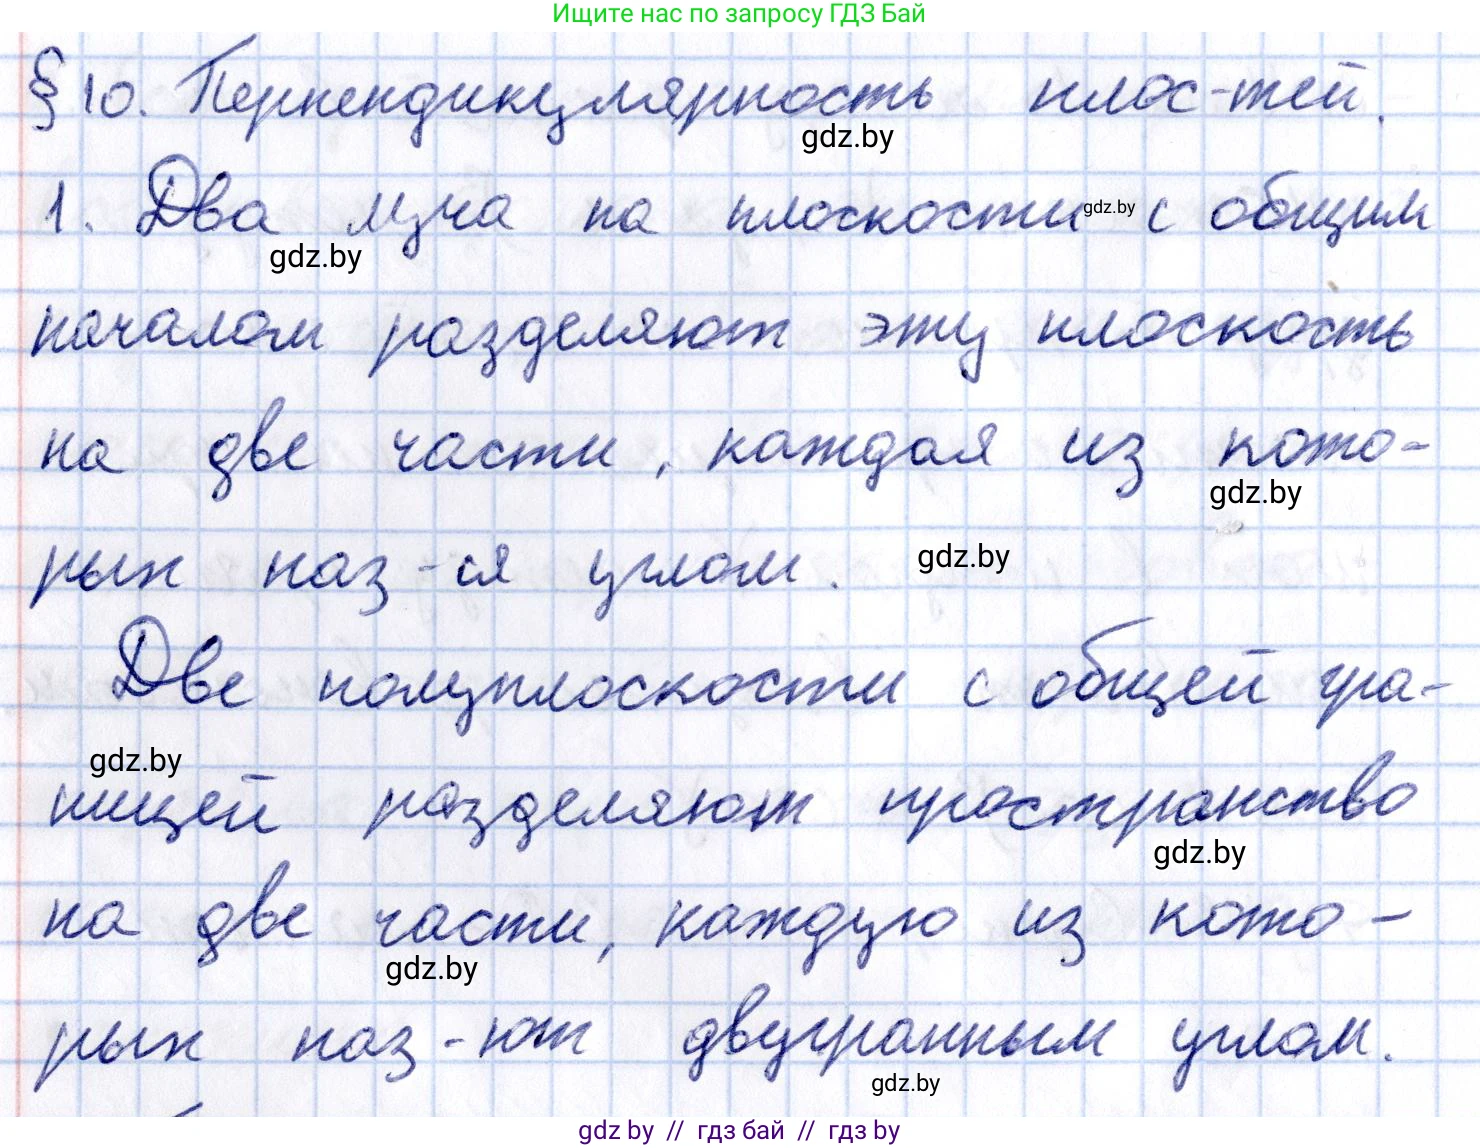 Ищите нас по запросу ГДЗ Бай
§ 10. Перпендикулярность плос-тей.
gdz.by
1. Два луча на плоскости gdz.by с общим
gdz.by
началом разделяют эту плоскость
на две части, каждая из кото-
gdz.by
рых наз-ся углом. gdz.by
Две полуплоскости с общей гра-
gdz.by
ницей разделяют пространство
gdz.by
на две части, каждую из кото-
gdz.by
рых наз-ют двугранным углом.
gdz.by
gdz by // гдз бай // гдз by